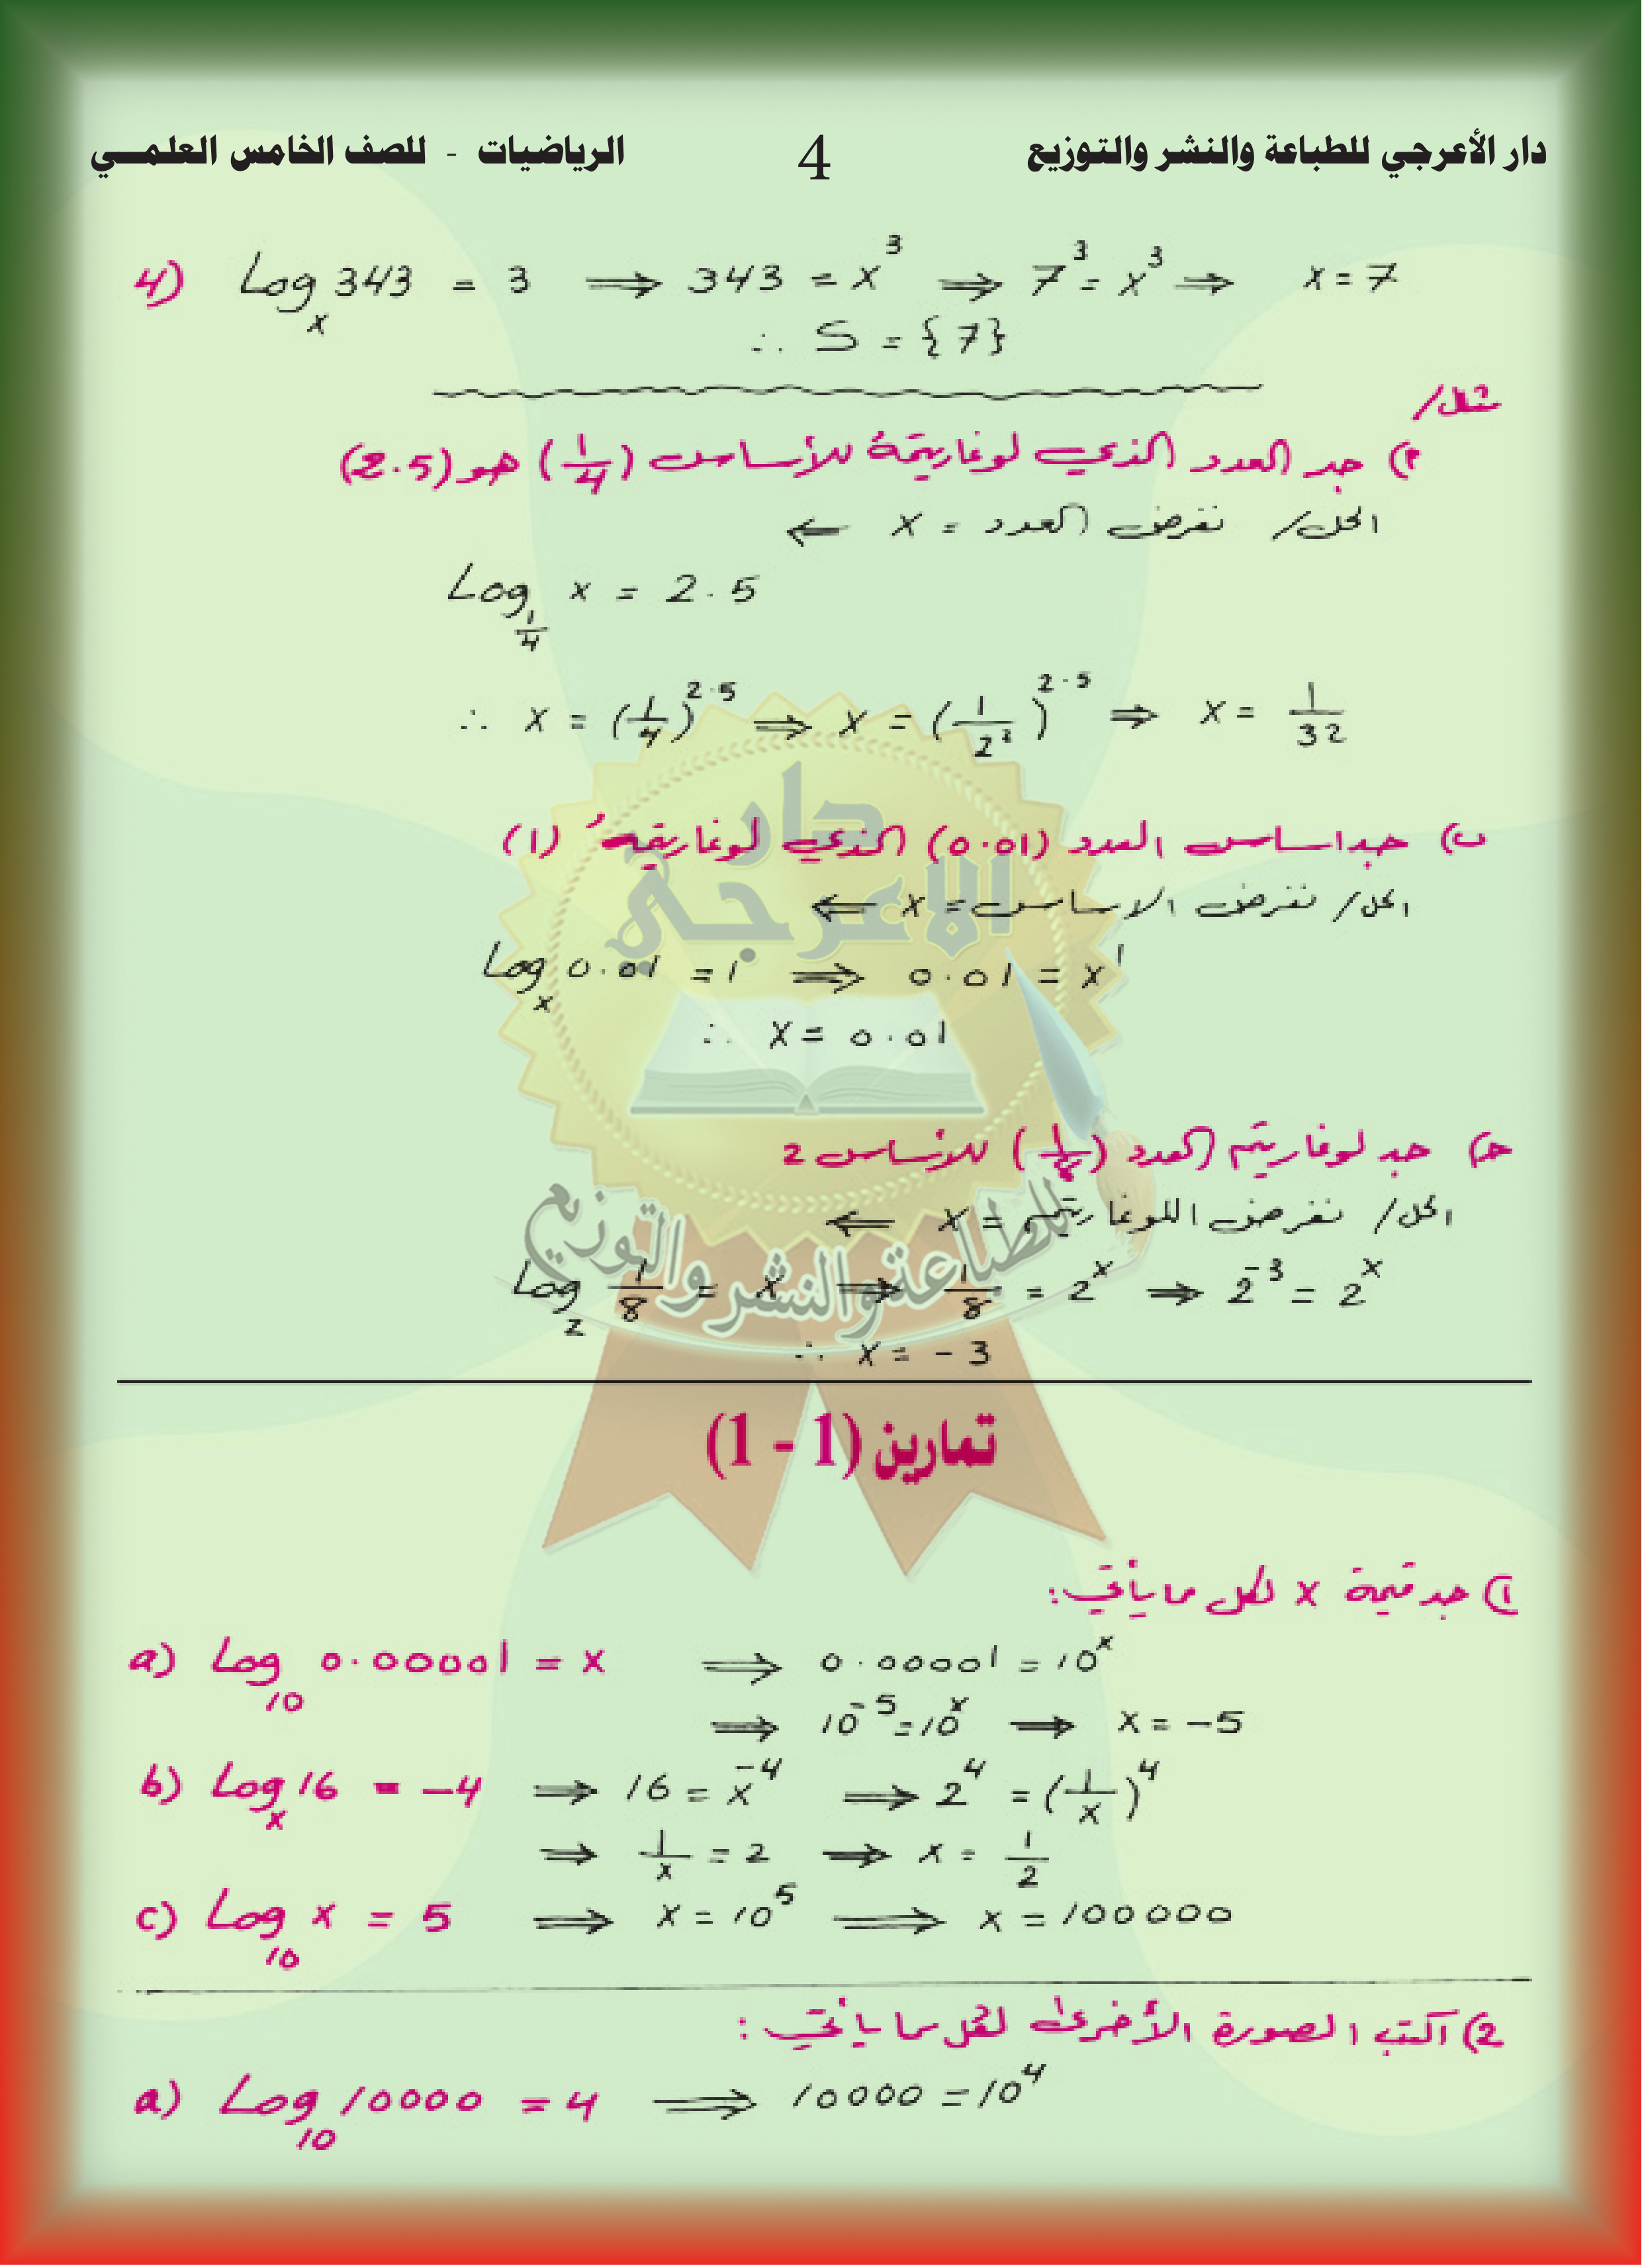 دار الأعرجي للطباعة والنشر والتوزيع 4 الرياضيات - للصف الخامس العلمـــي
4) Log_x 343 = 3 ⟹ 343 = x³ ⟹ 7³ = x³ ⟹ x = 7
∴ S = {7}
مثال/
أ) جد العدد الذي لوغاريتمهُ للأساس (1/4) هو (2.5)
الحل/ نفرض العدد = x ⟸
Log_{1/4} x = 2.5
∴ x = (1/4)^{2.5} ⟹ x = (1/2²)^{2.5} ⟹ x = 1/32
ب) جد اساس العدد (0.01) الذي لوغاريتمهُ (1)
الحل/ نفرض الاساس = x ⟸
Log_x 0.01 = 1 ⟹ 0.01 = x¹
∴ x = 0.01
جـ) جد لوغاريتم العدد (1/8) للأساس 2
الحل/ نفرض اللوغاريتم = x ⟸
Log_2 1/8 = x ⟹ 1/8 = 2^x ⟹ 2^{-3} = 2^x
∴ x = -3
دار
الاعرجي
للطباعة والنشر والتوزيع
تمارين (1 - 1)
1) جد قيمة x لكل مما يأتي :
a) Log_{10} 0.00001 = x ⟹ 0.00001 = 10^x
⟹ 10^{-5} = 10^x ⟹ x = -5
b) Log_x 16 = -4 ⟹ 16 = x^{-4} ⟹ 2⁴ = (1/x)⁴
⟹ 1/x = 2 ⟹ x = 1/2
c) Log_{10} x = 5 ⟹ x = 10⁵ ⟹ x = 100000
2) اكتب الصورة الأخرى لكل مما يأتي :
a) Log_{10} 10000 = 4 ⟹ 10000 = 10⁴